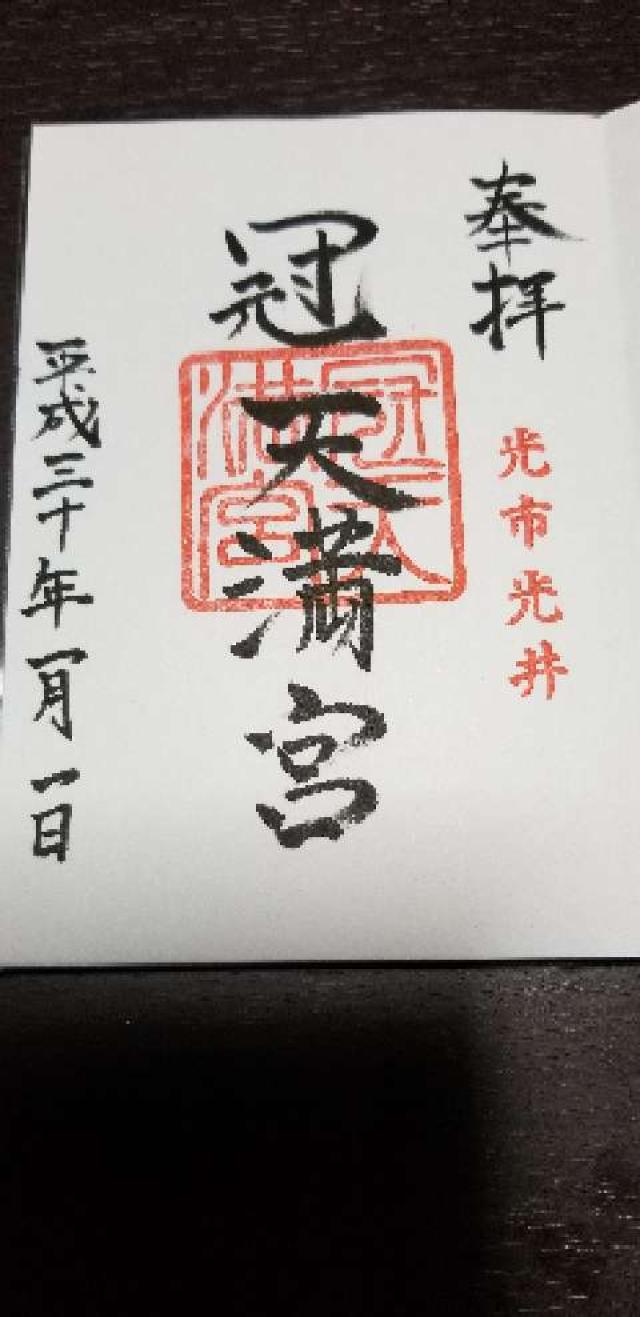 奉拝
光市光井
冠天満宮
冠天満宮
平成三十年一月一日